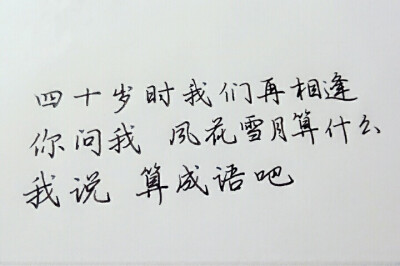 四十岁时我们再相逢
你问我 风花雪月算什么
我说 算成语吧